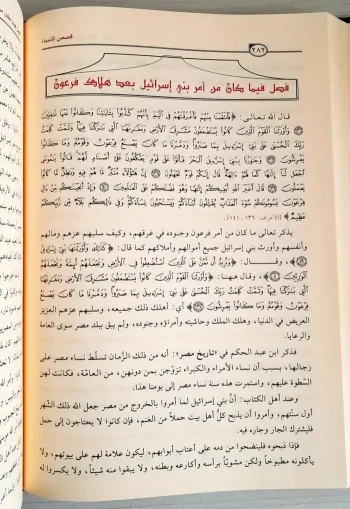 قصص الأنبياء
٤٨٢
فصل فيما كان من أمر بني إسرائيل بعد هلاك فرعون
قال الله تعالى: ﴿فَانْتَقَمْنَا مِنْهُمْ فَأَغْرَقْنَاهُمْ فِي الْيَمِّ بِأَنَّهُمْ كَذَّبُوا بِآيَاتِنَا وَكَانُوا عَنْهَا غَافِلِينَ
وَأَوْرَثْنَا الْقَوْمَ الَّذِينَ كَانُوا يُسْتَضْعَفُونَ مَشَارِقَ الْأَرْضِ وَمَغَارِبَهَا الَّتِي بَارَكْنَا فِيهَا وَتَمَّتْ كَلِمَتُ
رَبِّكَ الْحُسْنَى عَلَى بَنِي إِسْرَائِيلَ بِمَا صَبَرُوا وَدَمَّرْنَا مَا كَانَ يَصْنَعُ فِرْعَوْنُ وَقَوْمُهُ وَمَا كَانُوا
يَعْرِشُونَ وَجَاوَزْنَا بِبَنِي إِسْرَائِيلَ الْبَحْرَ فَأَتَوْا عَلَى قَوْمٍ يَعْكُفُونَ عَلَى أَصْنَامٍ لَهُمْ قَالُوا يَا مُوسَى
اجْعَلْ لَنَا إِلَهًا كَمَا لَهُمْ آلِهَةٌ قَالَ إِنَّكُمْ قَوْمٌ تَجْهَلُونَ إِنَّ هَؤُلَاءِ مُتَبَّرٌ مَا هُمْ فِيهِ وَبَاطِلٌ مَا كَانُوا
يَعْمَلُونَ قَالَ أَغَيْرَ اللَّهِ أَبْغِيكُمْ إِلَهًا وَهُوَ فَضَّلَكُمْ عَلَى الْعَالَمِينَ وَإِذْ أَنْجَيْنَاكُمْ مِنْ آلِ
فِرْعَوْنَ يَسُومُونَكُمْ سُوءَ الْعَذَابِ يُقَتِّلُونَ أَبْنَاءَكُمْ وَيَسْتَحْيُونَ نِسَاءَكُمْ وَفِي ذَلِكُمْ بَلَاءٌ مِنْ رَبِّكُمْ
عَظِيمٌ﴾ [الأعراف: ١٣٦ـ ١٤١].
يذكر تعالى ما كان من أمر فرعون وجنوده في غرقهم، وكيف سلبهم عزهم ومالهم
وأنفسهم وأورث بني إسرائيل جميع أموالهم وأملاكهم كما قال: ﴿كَذَلِكَ وَأَوْرَثْنَاهَا بَنِي إِسْرَائِيلَ
﴾، وقال: ﴿وَنُرِيدُ أَنْ نَمُنَّ عَلَى الَّذِينَ اسْتُضْعِفُوا فِي الْأَرْضِ وَنَجْعَلَهُمْ أَئِمَّةً وَنَجْعَلَهُمُ
الْوَارِثِينَ﴾، وقال ههنا: ﴿وَأَوْرَثْنَا الْقَوْمَ الَّذِينَ كَانُوا يُسْتَضْعَفُونَ مَشَارِقَ الْأَرْضِ وَمَغَارِبَهَا
الَّتِي بَارَكْنَا فِيهَا وَتَمَّتْ كَلِمَتُ رَبِّكَ الْحُسْنَى عَلَى بَنِي إِسْرَائِيلَ بِمَا صَبَرُوا وَدَمَّرْنَا مَا كَانَ يَصْنَعُ
فِرْعَوْنُ وَقَوْمُهُ وَمَا كَانُوا يَعْرِشُونَ﴾ أي: أهلك ذلك جميعه، وسلبهم عزهم العزيز
العريض في الدنيا، وهلك الملك وحاشيته وأمراؤه وجنوده، ولم يبق ببلد مصر سوى العامة
والرعايا.
فذكر ابن عبد الحكم في «تاريخ مصر»: أنه من ذلك الزّمان تسلّط نساء مصر على
رجالها، بسبب أن نساء الأمراء والكبراء تزوّجن بمن دونهن، من العامّة، فكانت لهن
السّطوة عليهم، واستمرت هذه سنة نساء مصر إلى يومنا هذا.
وعند أهل الكتاب: أنّ بني إسرائيل لما أُمروا بالخروج من مصر جعل الله ذلك الشّهر
أول سنتهم، وأُمروا أن يذبح كلُّ أهل بيت حملاً من الغنم، فإن كانوا لا يحتاجون إلى حمل
فليشترك الجار وجاره فيه.
فإذا ذبحوه فلينضحوا من دمه على أعتاب أبوابهم، ليكون علامة لهم على بيوتهم، ولا
يأكلونه مطبوخاً ولكن مشويّاً برأسه وأكارعه وبطنه، ولا يبقوا منه شيئاً، ولا يكسروا له